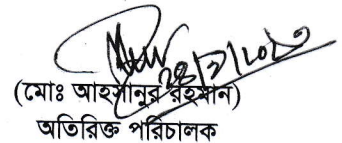 (মোঃ আহসানুর রহমান)
অতিরিক্ত পরিচালক